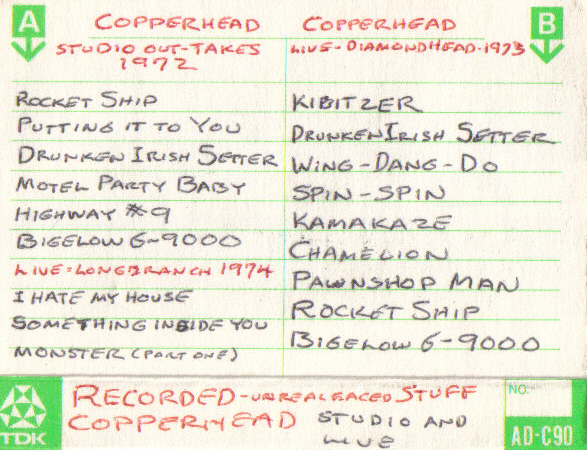 A
COPPERHEAD
STUDIO OUT-TAKES
1972
ROCKET SHIP
PUTTING IT TO YOU
DRUNKEN IRISH SETTER
MOTEL PARTY BABY
HIGHWAY #9
BIGELOW 6-9000
LIVE=LONGBRANCH 1974
I HATE MY HOUSE
SOMETHING INSIDE YOU
MONSTER (PART ONE)
B
COPPERHEAD
LIVE-DIAMONDHEAD-1973
KIBITZER
DRUNKEN IRISH SETTER
WING-DANG-DO
SPIN-SPIN
KAMAKAZE
CHAMELION
PAWNSHOP MAN
ROCKET SHIP
BIGELOW 6-9000
TDK
RECORDED-UNREALEACED STUFF
COPPERHEAD STUDIO AND
LIVE
NO.
AD-C90